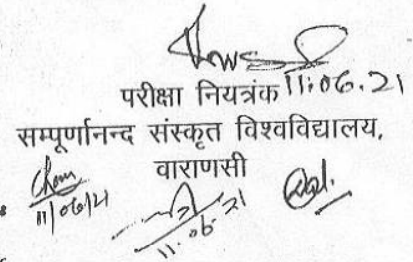 परीक्षा नियत्रंक 11.06.21
सम्पूर्णानन्द संस्कृत विश्वविद्यालय,
वाराणसी
11/06/21
11.06.21